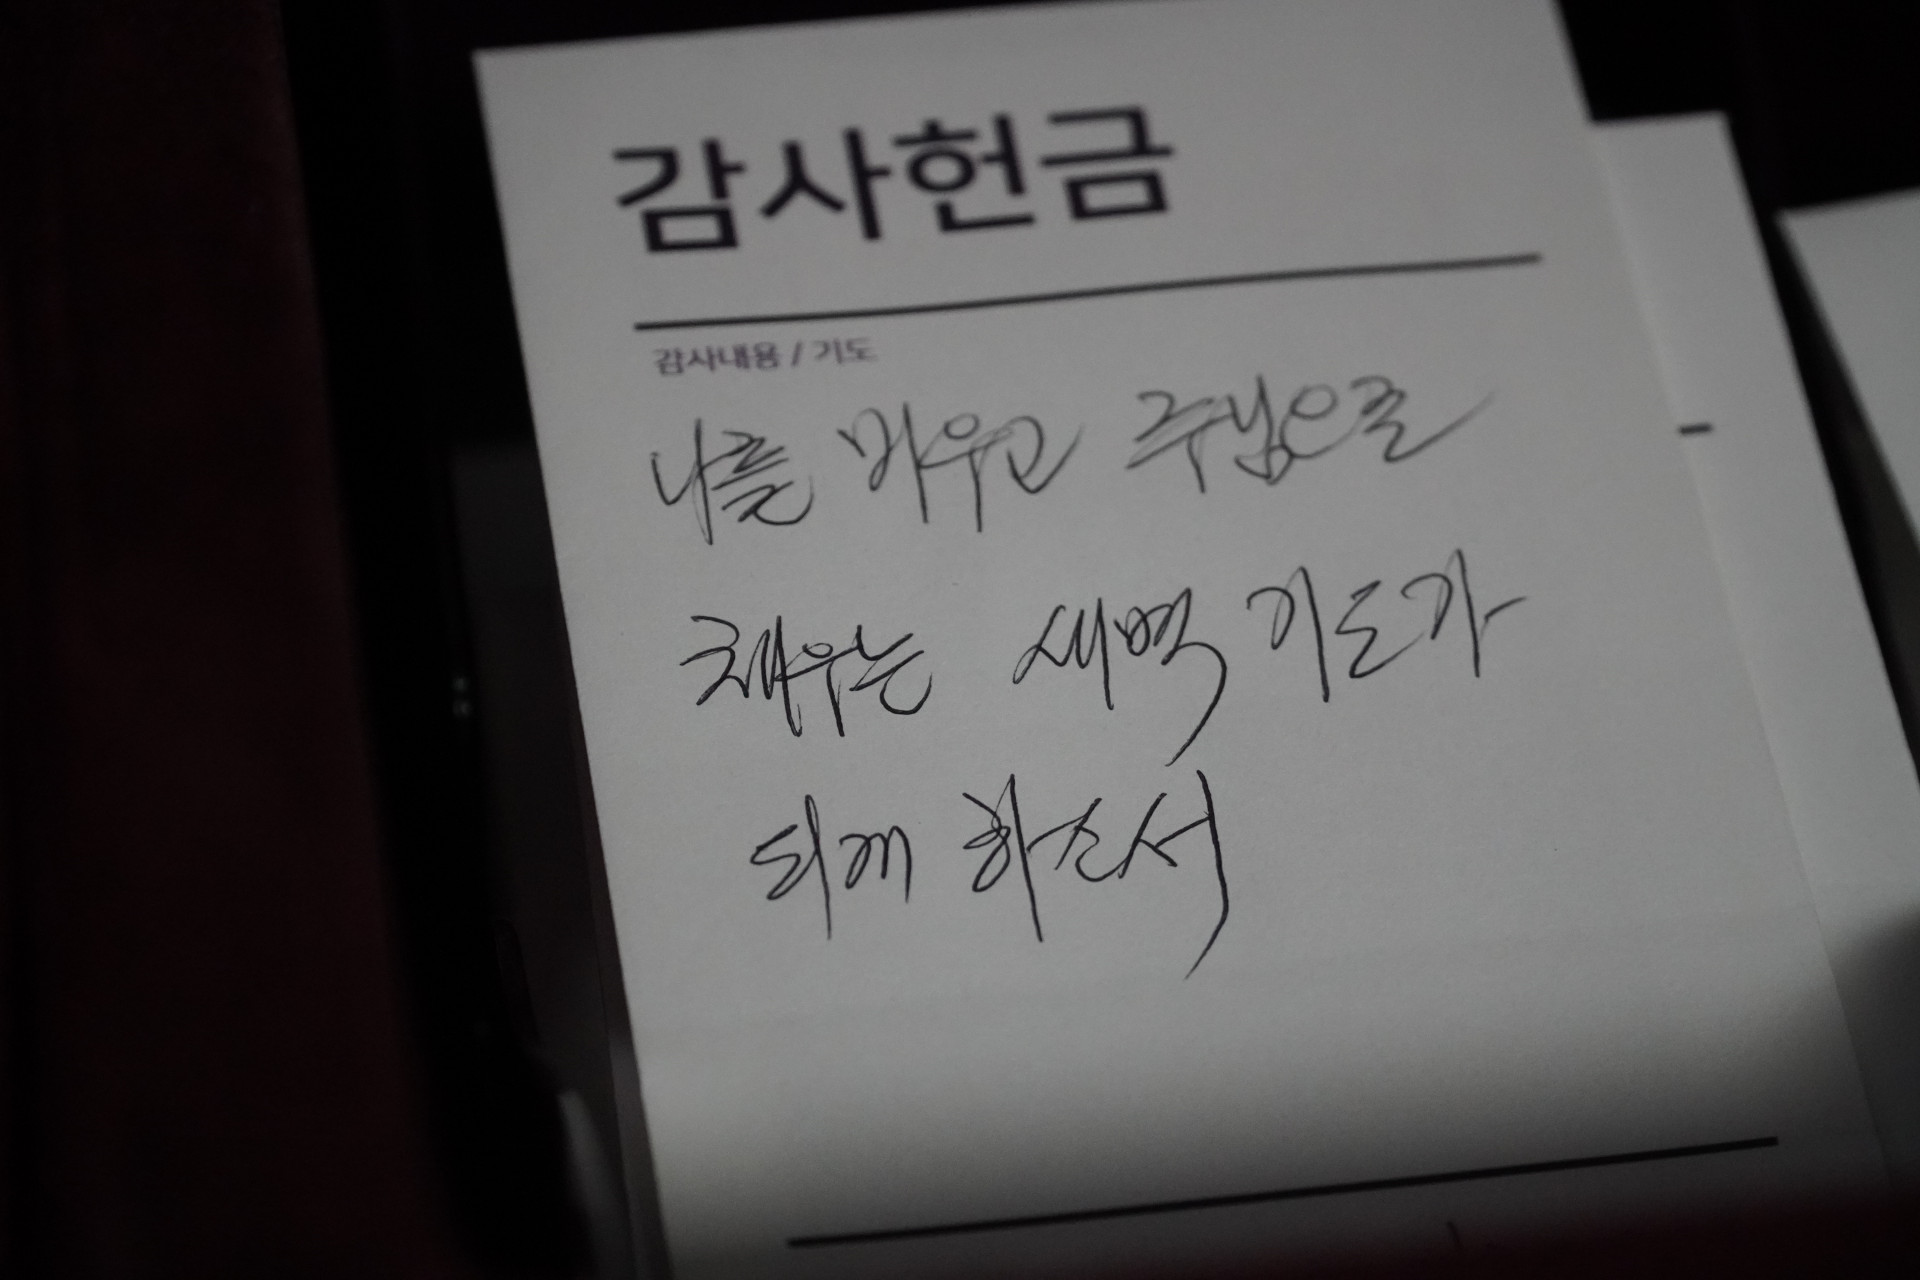 감사헌금
감사내용 / 기도
나를 비우고 주님으로
채우는 새벽 기도가
되게 하소서